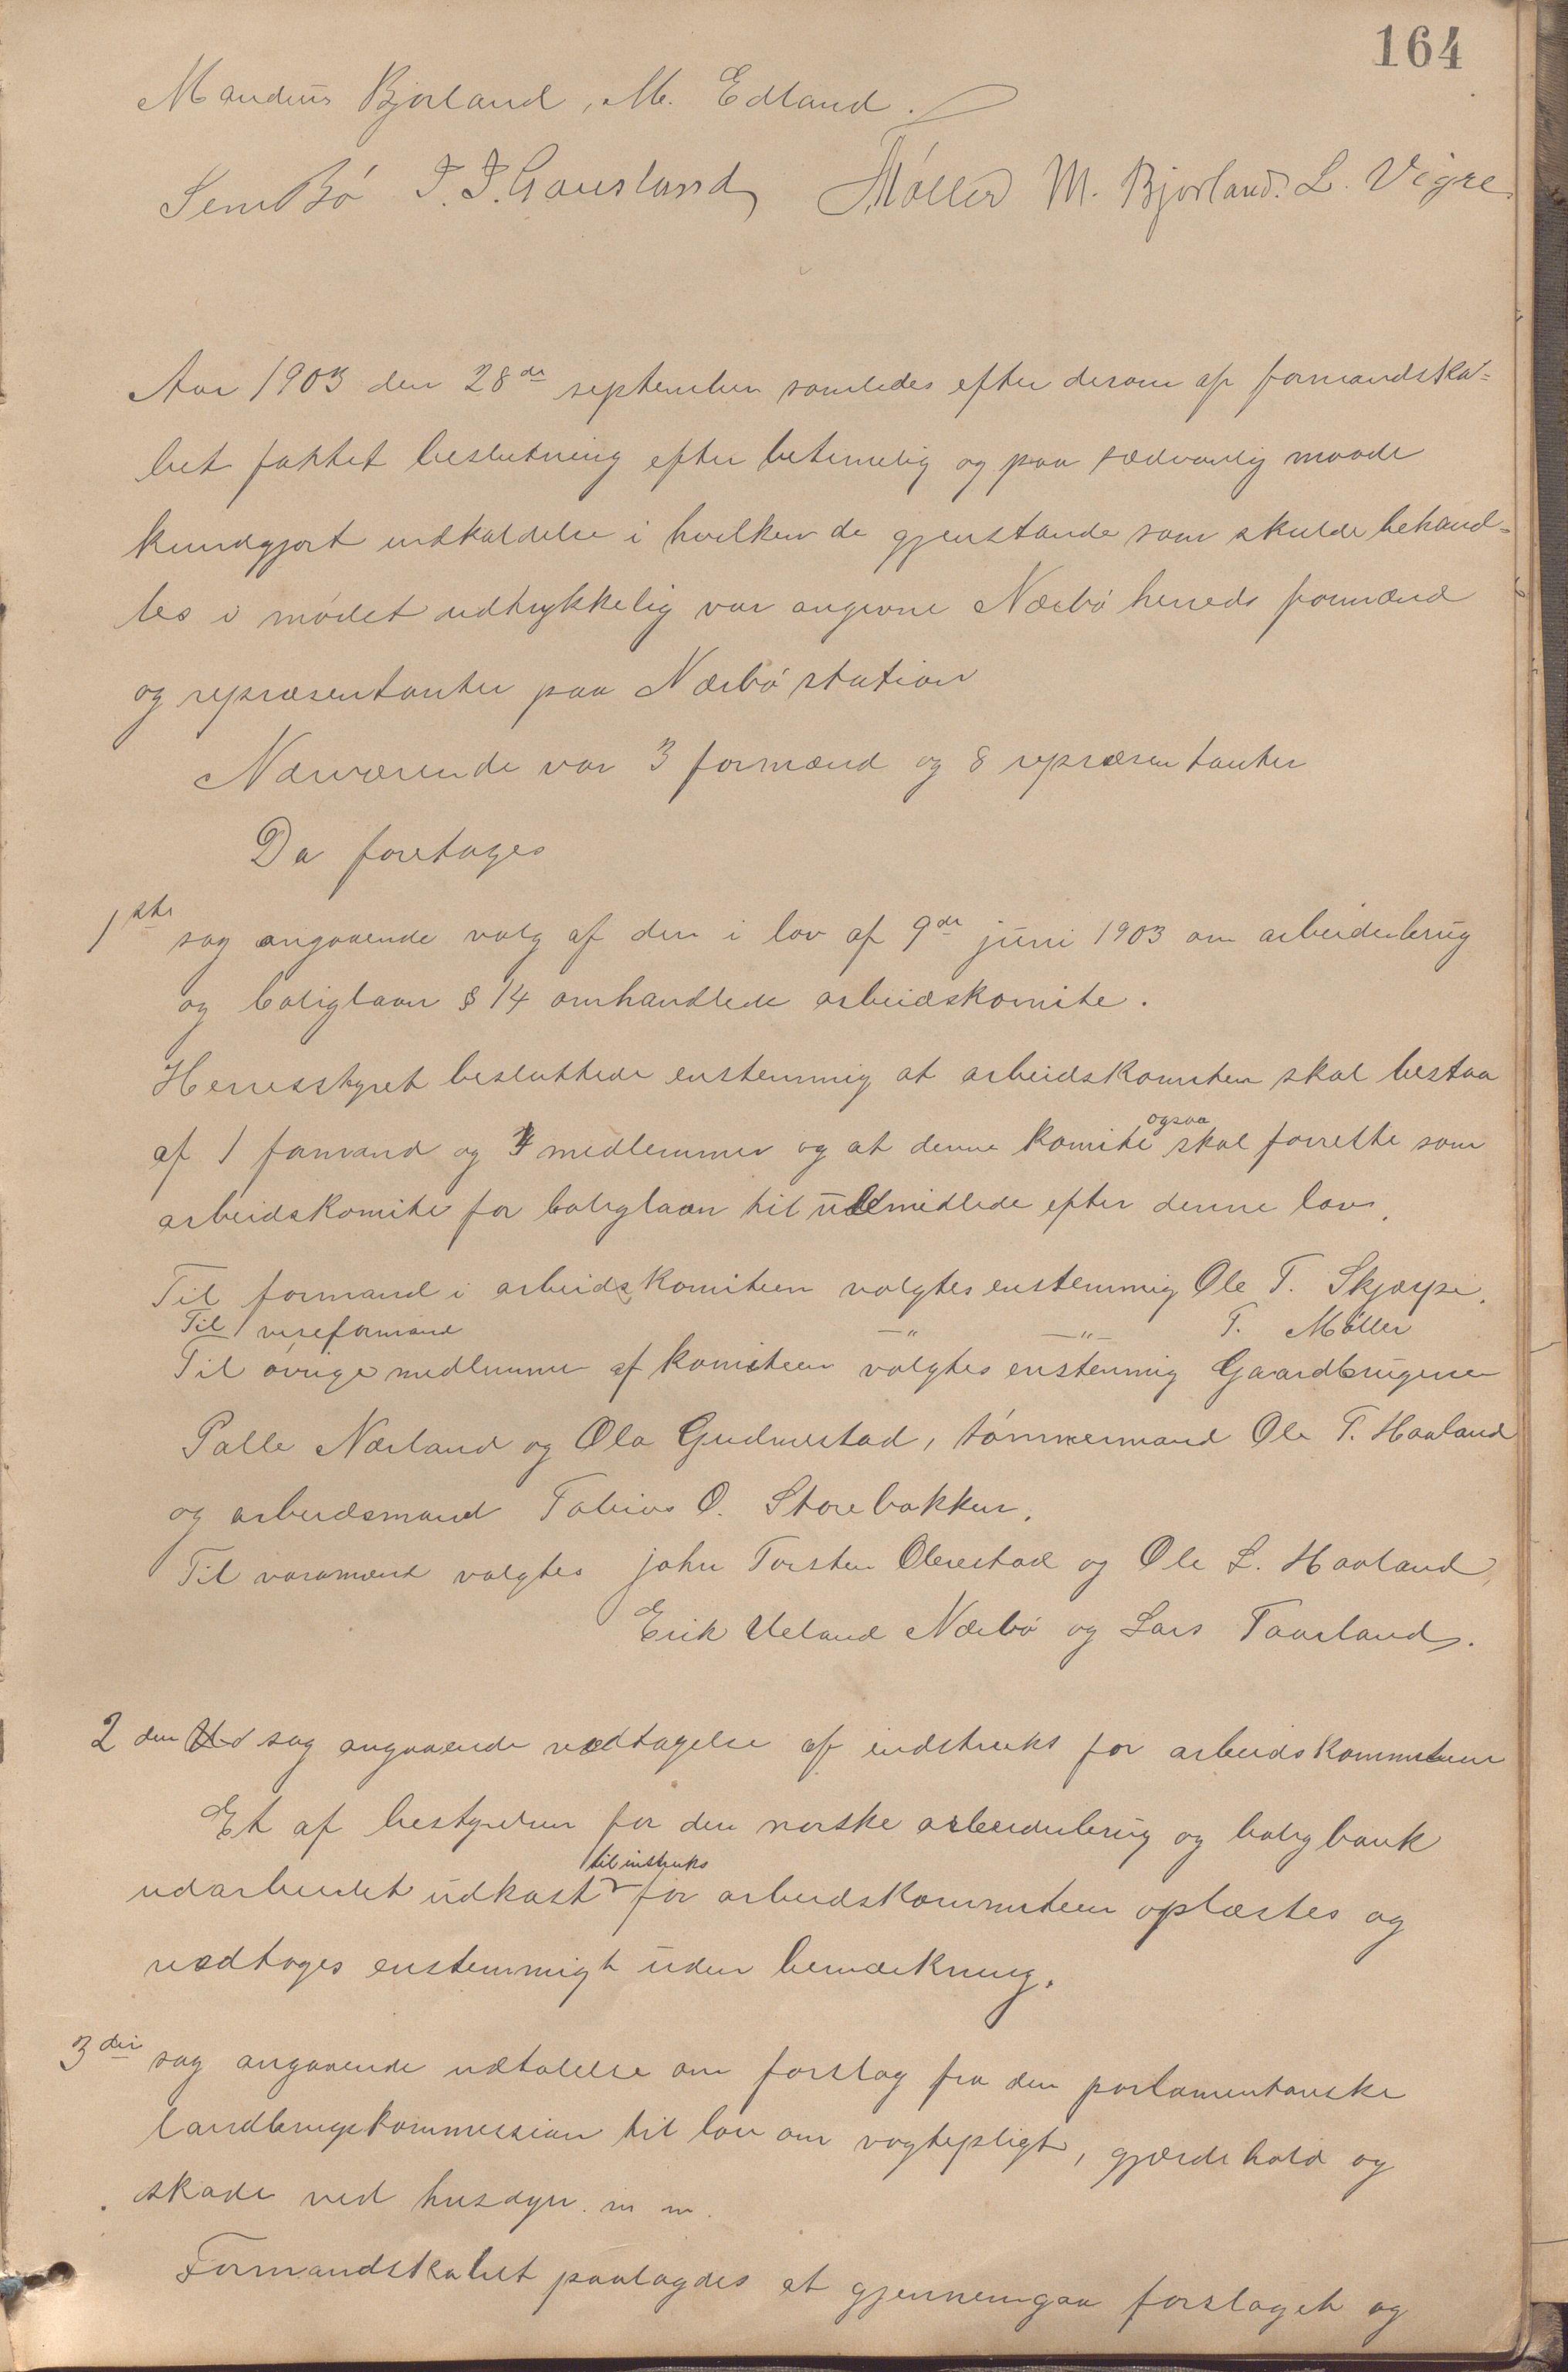 164
Mandius Bjorland, M. Edland.
Sem Bö J. J. Gausland T Möller M. Bjorland. L. Vigre
Aar 1903 den 28de september samledes efter derom af formandska-
bet fattet beslutning efter betimelig og paa sædvanlig maade
kundgjort indkaldelse i hvilken de gjenstande som skulde behand-
les i mödet udtrykkelig var angivne Nærbö herreds formænd
og repræsentanter paa Nærbö station
Nærværende var 3 formænd og 8 repræsentanter
Da foretages
1ste sag angaaende valg af den i lov af 9de juni 1903 om arbeiderbrug
og boliglaan § 14 omhandlede arbeidskomite.
Herresstyret besluttede enstemmig at arbeidskomiteen skal bestaa
af 1 formand og 4 medlemmer og at denne komite ogsaa skal forrette som
arbeidskomite for boliglaan til ubemidlede efter denne lov.
Til formand i arbeidskomiteen valgtes enstemmig Ole T. Skjærpe.
Til viseformand —„— —„— T. Möller
Til övrige medlemmer af komiteen valgtes enstemmig Gaardbrugerne
Palle Nærland og Ola Gudmestad, tömmermand Ole T. Haaland
og arbeidsmand Tobias O. Storebakken.
Til varamænd valgtes john Torsten Obrestad og Ole L. Haaland,
Erik Ueland Nærbö og Lars Taarland.
2 den sag angaaende vedtagelse af indstruks for arbeidskommiteen
Et af bestyrelsen for den norske arbeiderbrug og boligbank
udarbeidet udkast til instruks for arbeidskommiteen oplæstes og
vedtoges enstemmigt uden bemærkning.
3die sag angaaende udtalelse om forslag fra den parlamentariske
landbrugskommission til lov om vogtepligt, gjærdehold og
skade ved husdyr m m.
Formandskabet paalagdes at gjennemgaa forslaget og